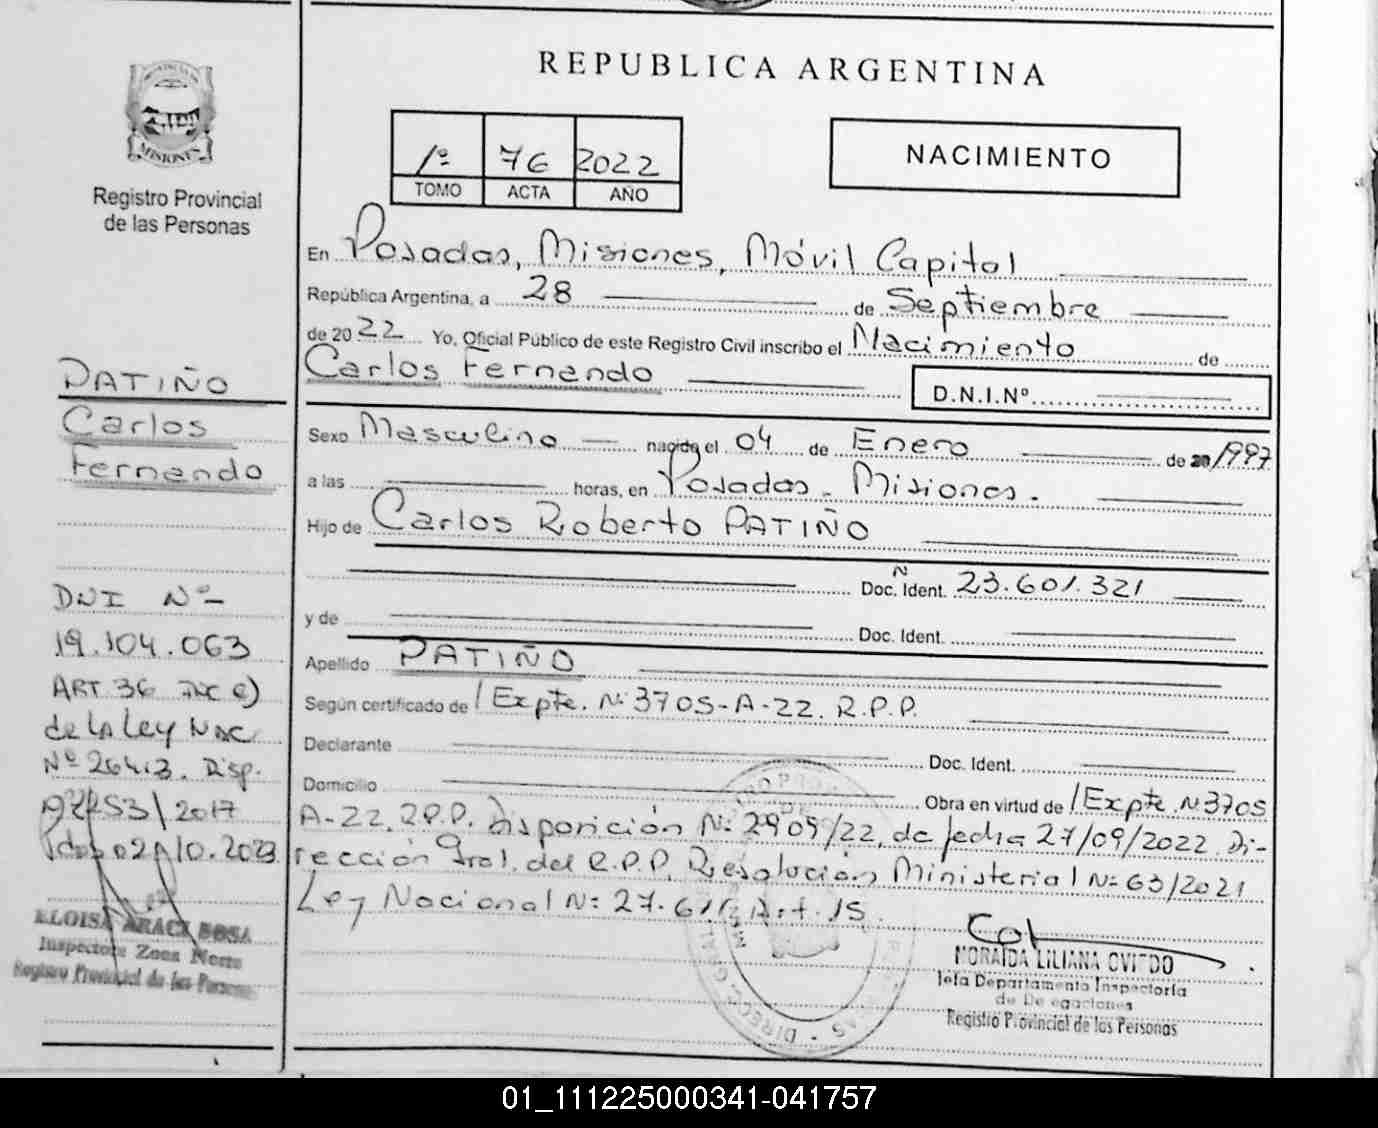 REPUBLICA ARGENTINA
MISIONES
Registro Provincial
de las Personas
1º 76 2022
TOMO ACTA AÑO
NACIMIENTO
En Posadas, Misiones, Móvil Capital
República Argentina, a 28 de Septiembre
de 2022 Yo, Oficial Público de este Registro Civil inscribo el Nacimiento de
Carlos Fernando
D.N.I.Nº
Sexo Masculino nacido el 04 de Enero de 1997
a las horas, en Posadas - Misiones.
Hijo de Carlos Roberto PATIÑO
Doc. Ident. Nº 23.601.321
y de Doc. Ident.
Apellido PATIÑO
Según certificado de / Expte. Nº 3705-A-22. R.P.P.
Declarante Doc. Ident.
Domicilio Obra en virtud de / Expte Nº 3705
A-22. R.P.P. Disposición Nº 2909/22, de fecha 27/09/2022 Di-
rección Gral. del R.P.P. Resolución Ministerial Nº 63/2021
Ley Nacional Nº 27.611 Art. 15.
MORAIDA LILIANA OVIEDO
Jefa Departamento Inspectoría
de Delegaciones
Registro Provincial de las Personas
PATIÑO
Carlos
Fernando
DNI Nº
19.104.063
ART 36 INC c)
de LA Ley NAC
Nº 26413. Disp.
/2017
02/10.2023
ELOISA ARACI SOSA
Inspectora Zona Norte
Registro Provincial de las Personas
01_111225000341-041757